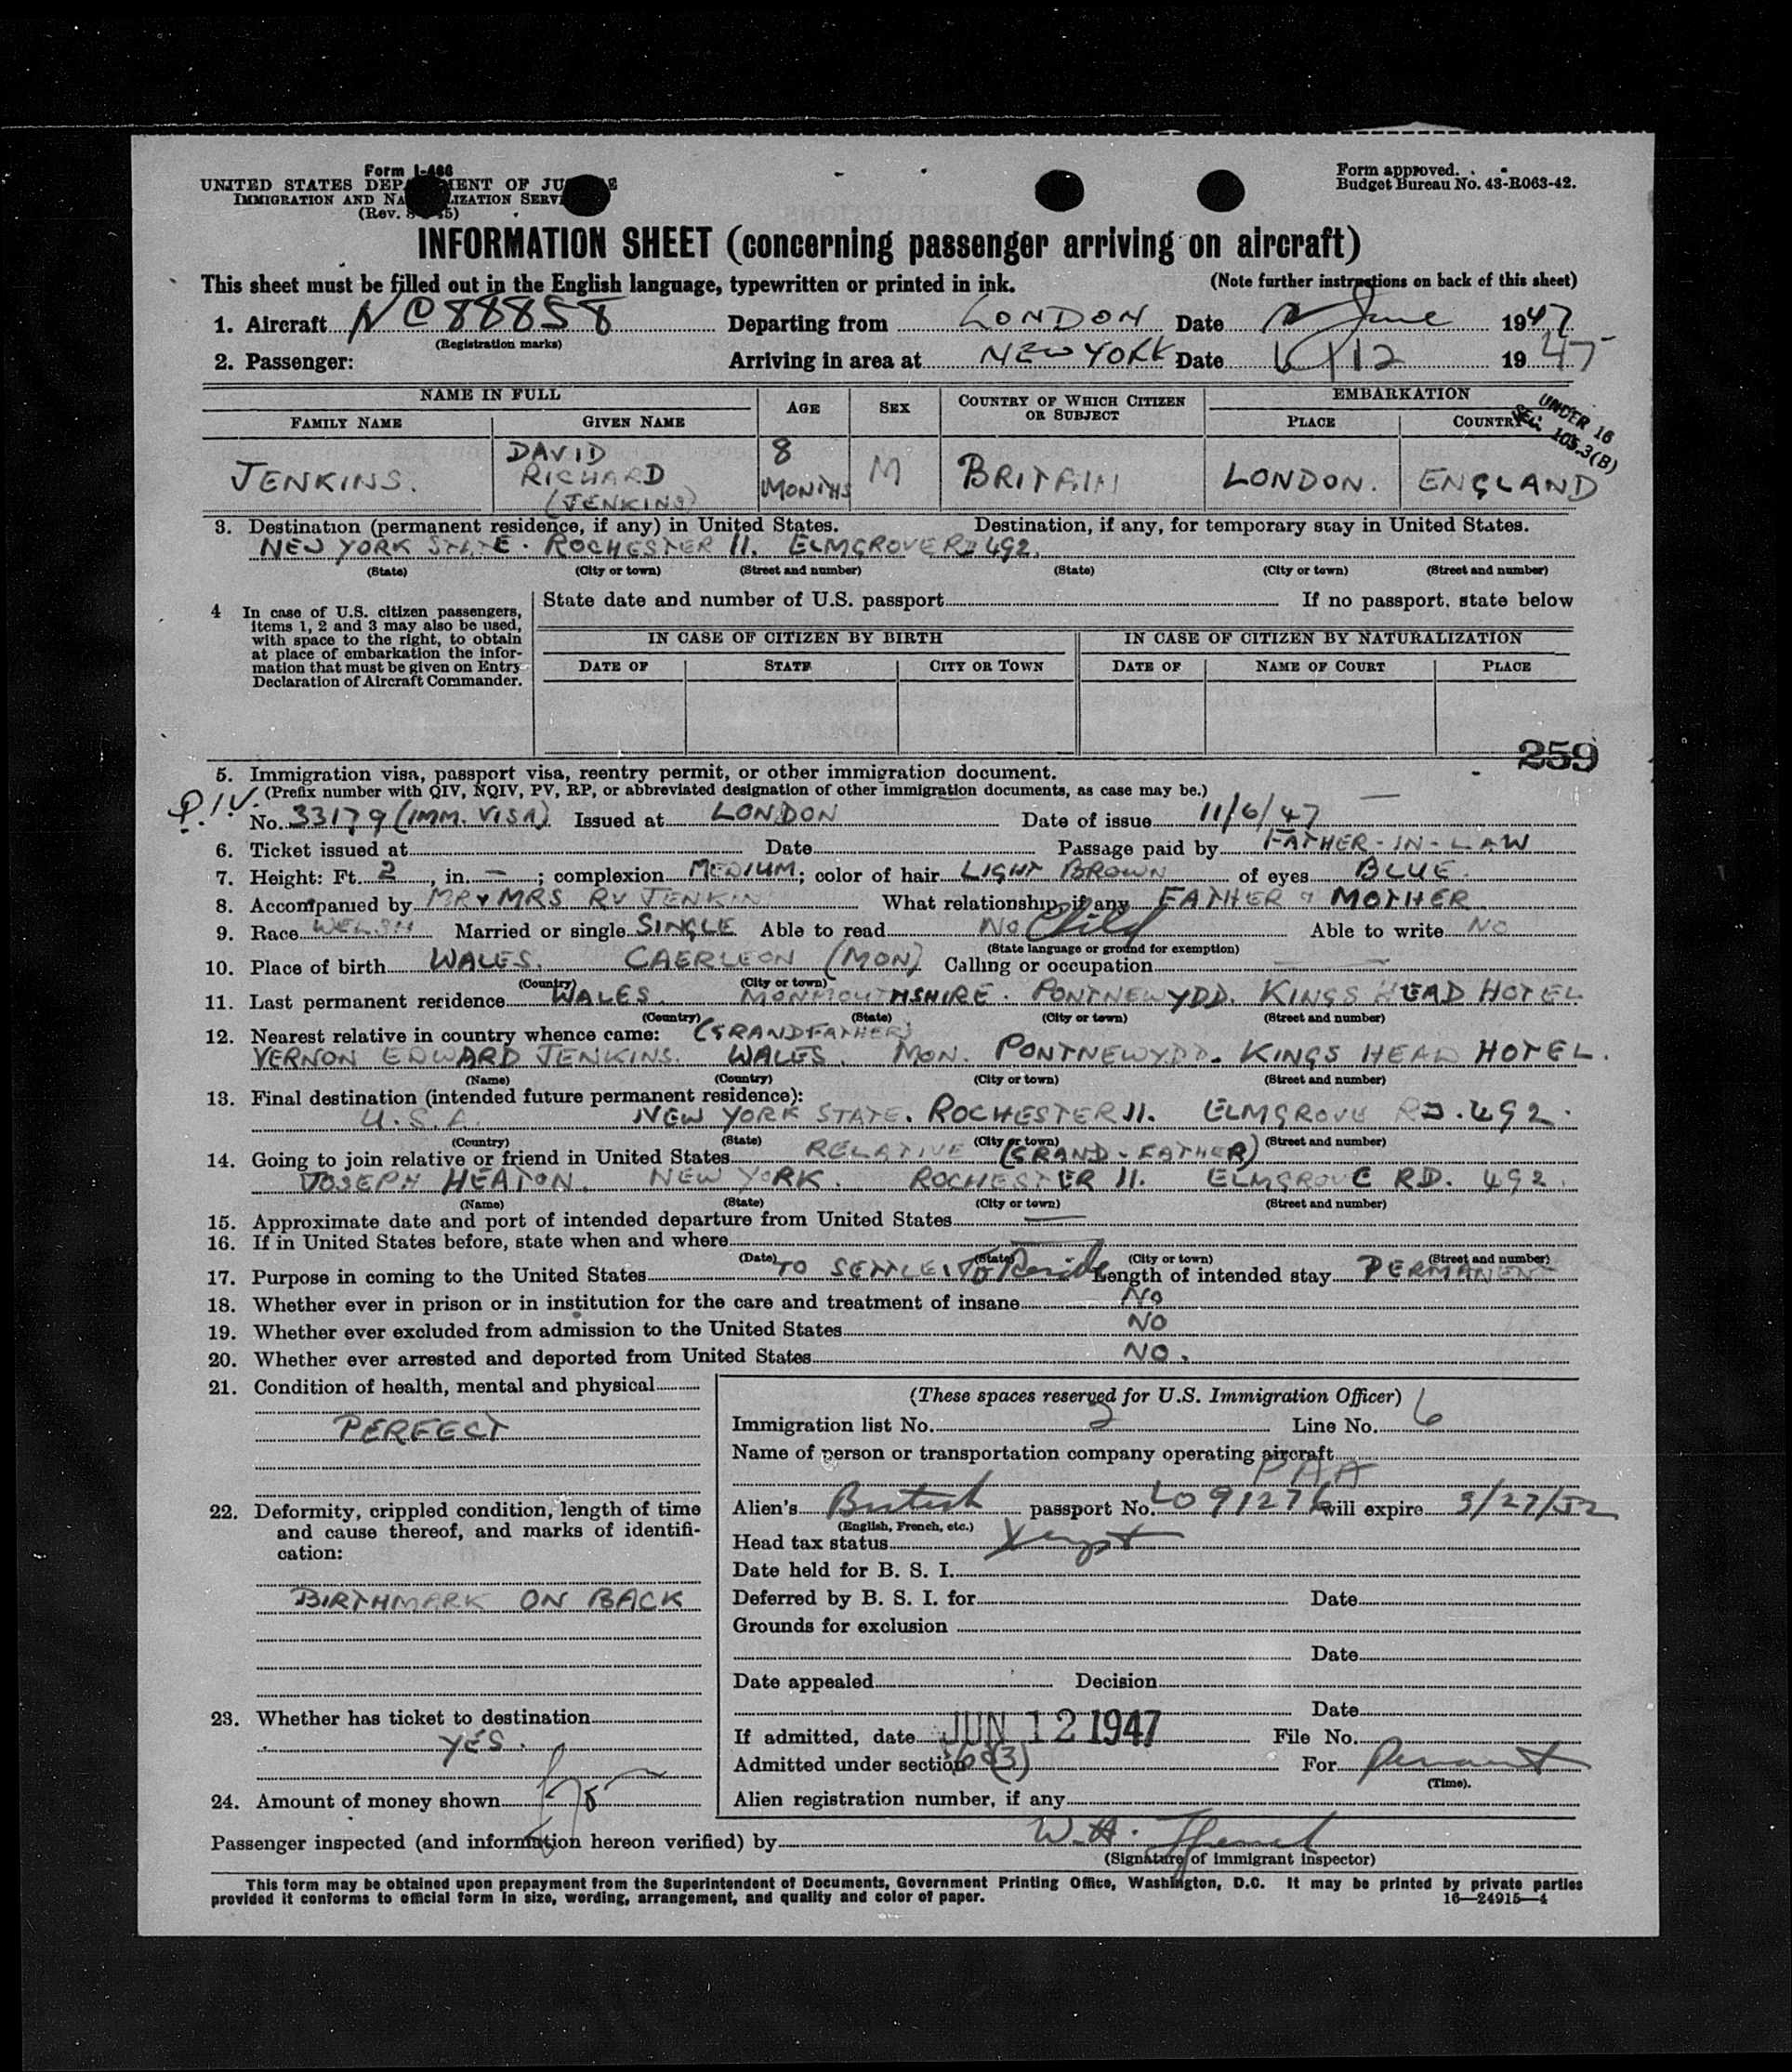 Form I-466
UNITED STATES DEPARTMENT OF JUSTICE
IMMIGRATION AND NATURALIZATION SERVICE
(Rev.
Form approved.
Budget Bureau No. 43-R063-42.
INFORMATION SHEET (concerning passenger arriving on aircraft)
This sheet must be filled out in the English language, typewritten or printed in ink. (Note further instructions on back of this sheet)
1. Aircraft NC88858 Departing from LONDON Date June 1947
(Registration marks)
2. Passenger: Arriving in area at NEW YORK Date 6/12 1947
NAME IN FULL AGE SEX COUNTRY OF WHICH CITIZEN OR SUBJECT EMBARKATION
FAMILY NAME GIVEN NAME PLACE COUNTRY
UNDER 16
SEC. 105.3(B)
JENKINS. DAVID RICHARD (JENKINS) 8 MONTHS M BRITAIN LONDON. ENGLAND
3. Destination (permanent residence, if any) in United States. Destination, if any, for temporary stay in United States.
NEW YORK STATE. ROCHESTER 11. ELMGROVE RD 492.
(State) (City or town) (Street and number) (State) (City or town) (Street and number)
4 In case of U.S. citizen passengers, items 1, 2 and 3 may also be used, with space to the right, to obtain at place of embarkation the information that must be given on Entry Declaration of Aircraft Commander.
State date and number of U.S. passport If no passport, state below
IN CASE OF CITIZEN BY BIRTH IN CASE OF CITIZEN BY NATURALIZATION
DATE OF STATE CITY OR TOWN DATE OF NAME OF COURT PLACE
259
5. Immigration visa, passport visa, reentry permit, or other immigration document.
(Prefix number with QIV, NQIV, PV, RP, or abbreviated designation of other immigration documents, as case may be.)
Q.I.V. No. 33179 (IMM. VISA) Issued at LONDON Date of issue 11/6/47
6. Ticket issued at Date Passage paid by FATHER-IN-LAW
7. Height: Ft. 2, in. —; complexion MEDIUM; color of hair LIGHT BROWN of eyes BLUE.
8. Accompanied by MR & MRS RV JENKIN What relationship, if any FATHER & MOTHER.
9. Race WELSH Married or single SINGLE Able to read NO Child Able to write NO
(State language or ground for exemption)
10. Place of birth WALES. CAERLEON (MON) Calling or occupation — —
(Country) (City or town)
11. Last permanent residence WALES. MONMOUTHSHIRE. PONTNEWYDD. KINGS HEAD HOTEL
(Country) (State) (City or town) (Street and number)
12. Nearest relative in country whence came: (GRANDFATHER)
VERNON EDWARD JENKINS. WALES. MON. PONTNEWYDD. KINGS HEAD HOTEL.
(Name) (Country) (City or town) (Street and number)
13. Final destination (intended future permanent residence):
U.S.A. NEW YORK STATE. ROCHESTER 11. ELMGROVE RD. 492.
(Country) (State) (City or town) (Street and number)
14. Going to join relative or friend in United States RELATIVE (GRAND-FATHER)
JOSEPH HEATON. NEW YORK. ROCHESTER 11. ELMGROVE RD. 492.
(Name) (State) (City or town) (Street and number)
15. Approximate date and port of intended departure from United States —
16. If in United States before, state when and where —
(Date) (State) (City or town) (Street and number)
17. Purpose in coming to the United States TO SETTLE. To Reside Length of intended stay PERMANENT
18. Whether ever in prison or in institution for the care and treatment of insane NO
19. Whether ever excluded from admission to the United States NO
20. Whether ever arrested and deported from United States NO.
21. Condition of health, mental and physical
PERFECT
22. Deformity, crippled condition, length of time and cause thereof, and marks of identification:
BIRTHMARK ON BACK
23. Whether has ticket to destination
YES.
24. Amount of money shown
(These spaces reserved for U.S. Immigration Officer)
Immigration list No. 2 Line No. 6
Name of person or transportation company operating aircraft
PAA
Alien's British passport No. L091276 will expire 5/27/52
(English, French, etc.)
Head tax status
Date held for B. S. I.
Deferred by B. S. I. for Date
Grounds for exclusion
Date
Date appealed Decision
Date
If admitted, date JUN 12 1947 File No.
Admitted under section 6(3) For Permanent
(Time).
Alien registration number, if any
Passenger inspected (and information hereon verified) by W. H.
(Signature of immigrant inspector)
This form may be obtained upon prepayment from the Superintendent of Documents, Government Printing Office, Washington, D.C. It may be printed by private parties
provided it conforms to official form in size, wording, arrangement, and quality and color of paper. 16—24915—4